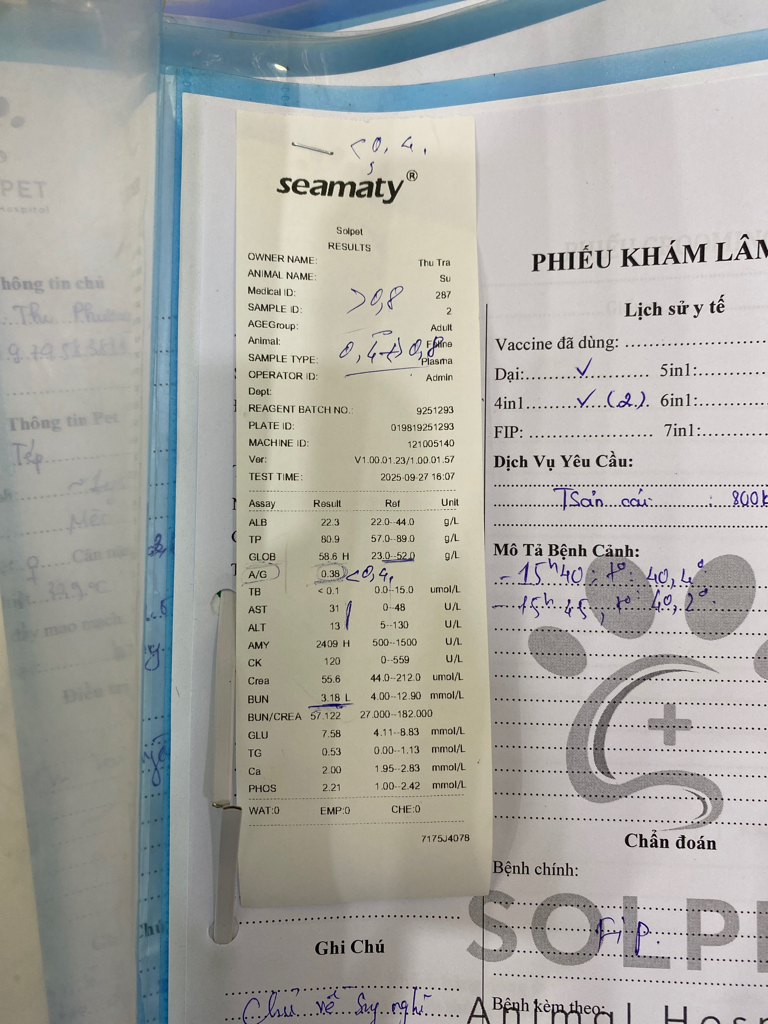 < 0,4.
seamaty®
Solpet
RESULTS
OWNER NAME: Thu Tra
ANIMAL NAME: Su
Medical ID: 287
>0,8
SAMPLE ID: 2
AGEGroup: Adult
Animal: Feline
0,4 -> 0,8
SAMPLE TYPE: Plasma
OPERATOR ID: Admin
Dept:
REAGENT BATCH NO.: 9251293
PLATE ID: 019819251293
MACHINE ID: 121005140
Ver: V1.00.01.23/1.00.01.57
TEST TIME: 2025-09-27 16:07
Assay Result Ref Unit
ALB 22.3 22.0--44.0 g/L
TP 80.9 57.0--89.0 g/L
GLOB 58.6 H 23.0--52.0 g/L
A/G 0.38 <0,4.
TB < 0.1 0.0--15.0 umol/L
AST 31 0--48 U/L
ALT 13 5--130 U/L
AMY 2409 H 500--1500 U/L
CK 120 0--559 U/L
Crea 55.6 44.0--212.0 umol/L
BUN 3.18 L 4.00--12.90 mmol/L
BUN/CREA 57.122 27.000--182.000
GLU 7.58 4.11--8.83 mmol/L
TG 0.53 0.00--1.13 mmol/L
Ca 2.00 1.95--2.83 mmol/L
PHOS 2.21 1.00--2.42 mmol/L
WAT:0 EMP:0 CHE:0
7175J4078
Ghi Chú
Chủ về suy nghĩ
PHIẾU KHÁM LÂM
Lịch sử y tế
Vaccine đã dùng:
Dại: ✓ 5in1:
4in1 ✓ (2). 6in1:
FIP: 7in1:
Dịch Vụ Yêu Cầu:
Tsản cái : 800k
Mô Tả Bệnh Cảnh:
- 15h40 : t°: 40,4°
- 15h45, t°: 40,2°
Chẩn đoán
Bệnh chính:
Fip.
SOLP
Bệnh kèm theo:
Animal Hosp
PET
Hospital
hông tin chủ
Thu Phương
Thông tin Pet
Tép
Mèo
Cân